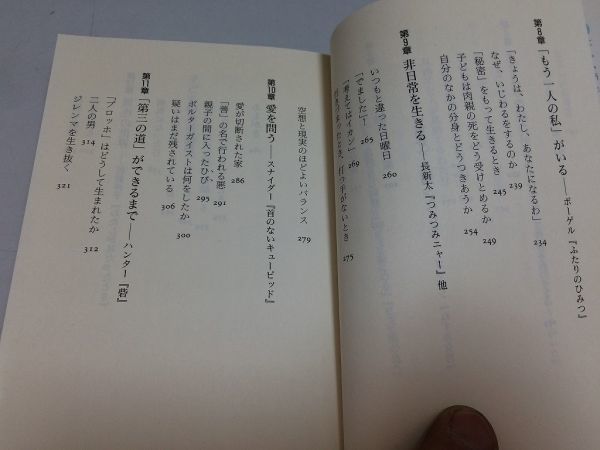 第8章 「もう一人の私」がいる——ボーゲル『ふたりのひみつ』
「きょうは、わたし、あなたになるわ」 234
なぜ、いじわるをするのか 239
「秘密」をもって生きるとき 245
子どもは肉親の死をどう受けとめるか 249
自分のなかの分身とどうつきあうか 254
第9章 非日常を生きる——長新太『つみつみニャー』他
いつもと違った日曜日 260
「でました!」 265
「考えてはイカン」 269
打つ手がないとき 275
空想と現実のほどよいバランス 279
第10章 愛を問う——スナイダー『首のないキューピッド』
愛が切断された家 286
「善」の名で行われる悪 291
親子の間に入ったひび 295
ポルターガイストは何をしたか 300
疑いはまだ残されている 306
第11章 「第三の道」ができるまで——ハンター『砦』
「ブロッホ」はどうして生まれたか 312
二人の男 314
ジレンマを生き抜く 321